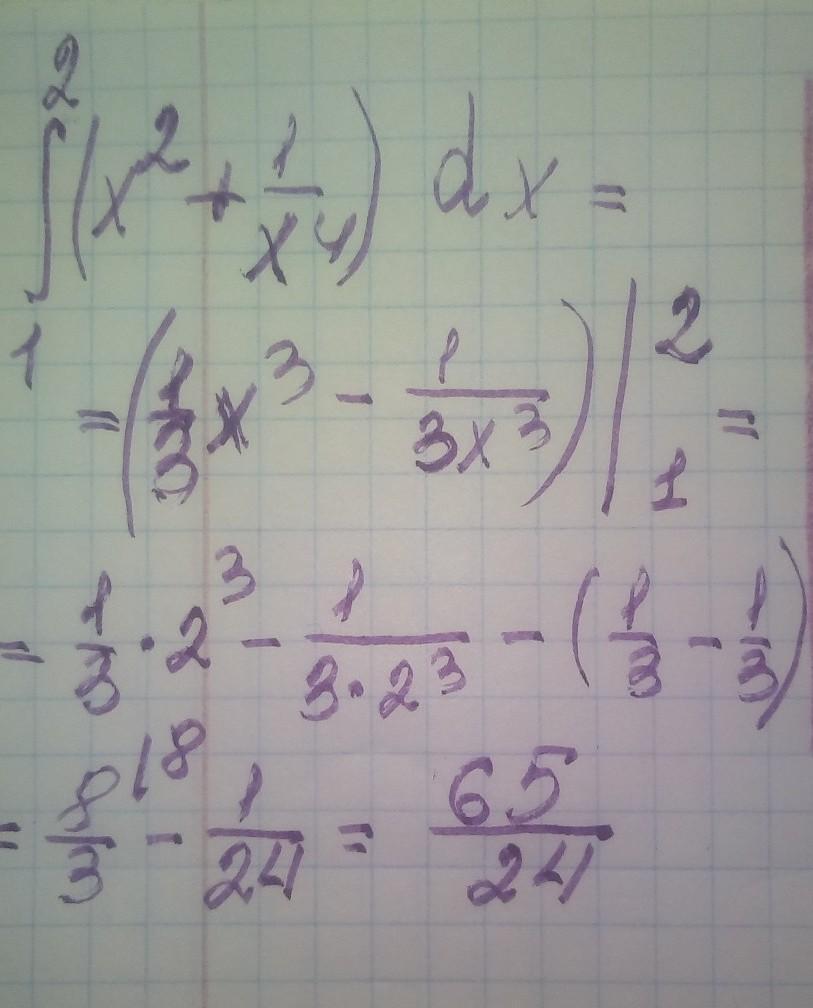 ∫₁² (x² + 1/x⁴) dx =
= (1/3 x³ - 1/(3x³)) |₁² =
= 1/3 · 2³ - 1/(3·2³) - (1/3 - 1/3)
= 8/3 ⁽⁸ - 1/24 = 65/24